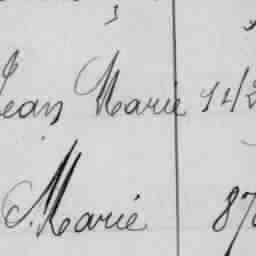 Jean Marie 142
Marie 87